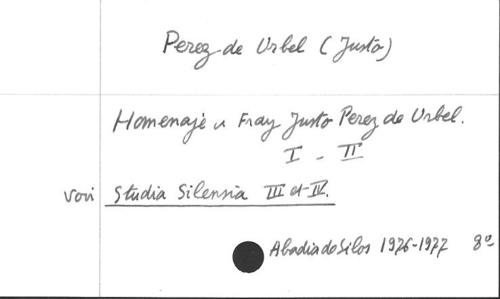 Perez de Urbel (Justo)
Homenaje a Fray Justo Perez de Urbel.
I - II
voir Studia Silensia III et IV.
Abadia de Silos 1976-1977 8º